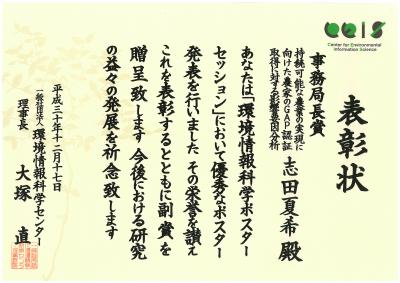 CEIS
Center for Environmental
Information Science
表彰状
事務局長賞
持続可能な農業の実現に
向けた農家のGAP認証
取得に対する影響要因分析
志田夏希 殿
あなたは「環境情報科学ポスター
セッション」において優秀なポスター
発表を行いました その栄誉を讃え
これを表彰するとともに副賞を
贈呈致します 今後における研究
の益々の発展を祈念致します
平成三十年十二月十七日
一般社団法人 環境情報科学センター
理事長 大塚 直